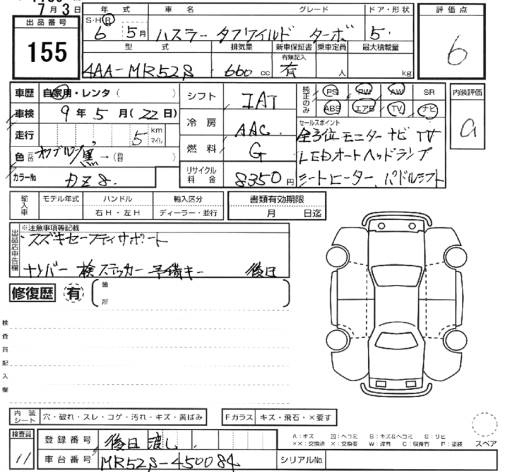 7月3日
出品番号
155
年式 車名 グレード ドア・形状
S・H・R
6 5月 ハスラー タフワイルド ターボ 5
型式 排気量 新車保証書 乗車定員 最大積載量
有無記入
4AA-MR52S 660cc 有 人 kg
評価点
6
内装評価
a
車歴 自家用・レンタ( )
車検 9年5月(22日)
走行 5 km マイル
色 黒
カラーNo
シフト IAT
冷房 AAC
燃料 G
リサイクル料金 8350円
純正のみ
PS PW AW SR
ABS エアB TV ナビ
セールスポイント
全方位モニターナビTV
LEDオートヘッドランプ
シートヒーター、パドルシフト
輸入車 モデル年式 ハンドル 輸入区分
右H・左H ディーラー・並行
書類有効期限
月 日迄
出品店申告欄
※注意事項等記載
スズキセーフティサポート
ナンバー 検ステッカー 予備キー 後日
修復歴 有
箇所
検査員記入欄
内装シート 穴・破れ・スレ・コゲ・汚れ・キズ・黄ばみ
Fガラス キズ・飛石・×要す
スペア
検査員
11
登録番号 後日渡し
車台番号 MR52S-450084
シリアルNo